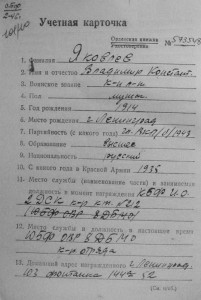 Учетная карточка
Орденская книжка №593548
1. Фамилия Яковлев
2. Имя и отчество Владимир Констант.
3. Воинское звание к-н л-т
4. Пол мужск.
5. Год рождения 1914
6. Место рождения г. Ленинград
7. Партийность (с какого года) чл. ВКП(б) 1943
8. Образование
9. Национальность русский
10. С какого года в Красной Армии 1935
11. Место службы (наименование части) и занимаемая
должность в момент награждения КБФ
2 ДСК к-р кт. №212
12. Место службы и должность в настоящее время
ЮБФ ОВР
к-р отряда
13. Домашний адрес награжденного г. Ленинград